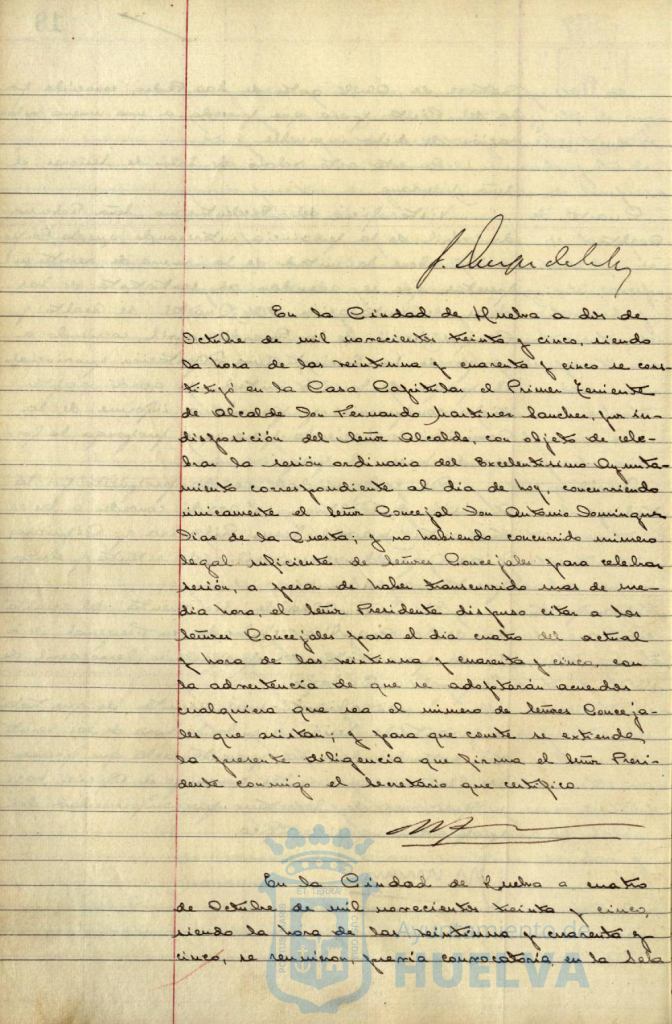 En la Ciudad de Huelva a dos de
Octubre de mil novecientos treinta y cinco, siendo
la hora de las veintiuna y cuarenta y cinco se cons-
tituyó en la Casa Capitular el Primer Teniente
de Alcalde Don Fernando Martinez Sanchez, por in-
disposición del Señor Alcalde, con objeto de cele-
brar la sesión ordinaria del Excelentísimo Ayunta-
miento correspondiente al dia de hoy, concurriendo
únicamente el Señor Concejal Don Antonio Dominguez
Dias de la Cuesta; y no habiendo concurrido número
legal suficiente de Señores Concejales para celebrar
sesión, a pesar de haber transcurrido mas de me-
dia hora, el Señor Presidente dispuso citar a los
Señores Concejales para el dia cuatro del actual
y hora de las veintiuna y cuarenta y cinco, con
la advertencia de que se adoptarán acuerdos
cualquiera que sea el número de Señores Conceja-
les que asistan; y para que conste se extiende
la presente diligencia que firma el Señor Presi-
dente conmigo el Secretario que certifico.
En la Ciudad de Huelva a cuatro
de Octubre de mil novecientos treinta y cinco,
siendo la hora de las veintiuna y cuarenta y
cinco, se reunieron, previa convocatoria, en la Sala
Ayuntamiento de
HUELVA